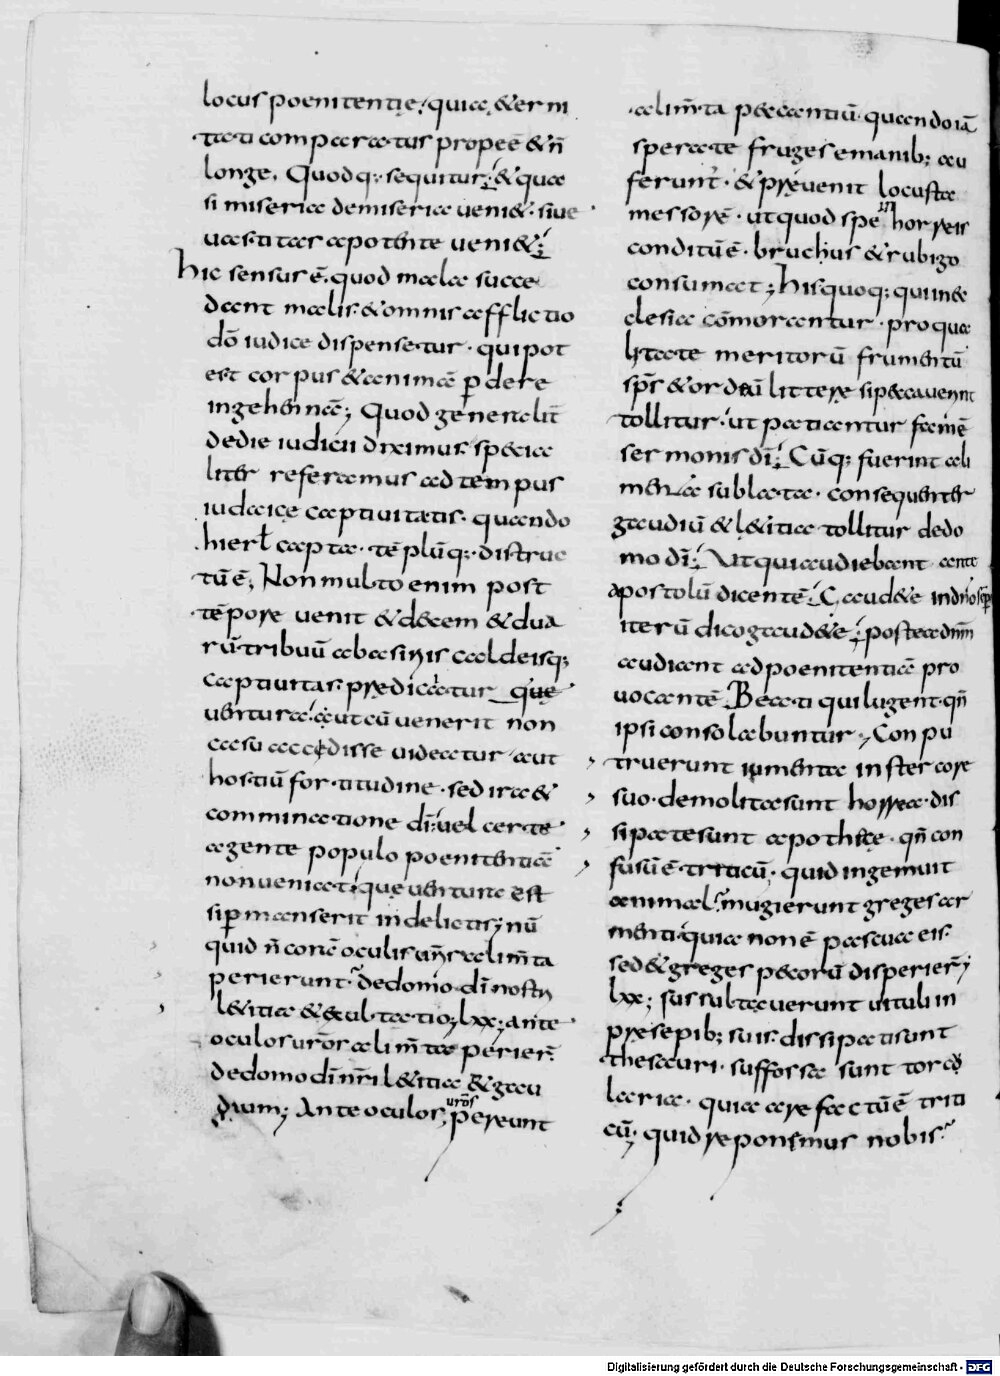 locus poenitentię; quia & ermi
tati comparatus prope ē & n̄
longe. Quodq; sequitur; & qua
si miseria de miseria ueni&. siue
uastitas a potente ueni&;
hic sensus ē. quod mala succe
dant malis. & omnis afflictio
dō iudice dispensetur. qui pot
est corpus & animā ꝑdere
in gehennā; Quod generalit̄
de die iudicii diximus. specia
liter referamus ad tempus
iudaicę captiuitatis. quando
hierl̄ capta. tēplūq; distruc
tū ē; Non multo enim post
tēpore uenit & decem & dua
rū tribuū ab assiriis caldeisq;
captiuitas. prędicatur quę
uentura. aut cū uenerit non
casu accędisse uideatur aut
hostiū fortitudine. sed ira &
comminatione dī. uel certe
agente populo poenitentiā
non ueniat. quę uentura est
si ꝑmanserit in delictis; nū
quid n̄ coram oculis ur̄is alim̄ta
perierunt. de domo dī nostri
l&itia & exultatio; lxx; ante
oculos ur̄os alim̄ta perier̄
de domo dī nr̄i l&itia & gau
dium; Ante oculos ur̄os pereunt
alim̄ta peccantiū. quando iā
sperate fruges e manib; au
ferunt̄. & pręuenit locusta
messorē. ut quod spe in horreis
conditū ē. bruchus & rubigo
consumat; his quoq; qui in ec
clesia cōmorantur. pro qua
litate meritorū frumentū
sp̄s & ordeū litterę si peccauerint
tollitur. ut patiantur famē
sermonis dī; Cūq; fuerint ali
menta sublata. consequenter
gaudiū & l&itia tollitur de do
mo dī; Ut qui audiebant ante
apostolū dicentē; Gaud&e in dn̄o semp
iterū dico gaud&e; postea dnm̄
audiant ad poenitentiā pro
uocantē Beati qui lugent. qn̄
ipsi consolabuntur; Conpu
truerunt iumenta in stercore
suo. demolita sunt horrea. dis
sipate sunt apothecę. qn̄ con
fusū ē triticū. quid ingemuit
animal. mugierunt greges ar
menti. quia non ē pascua eis.
sed & greges pecorū disperier̄;
lxx; sussultauerunt uituli in
pręsepib; suis. dissipati sunt
thesauri. suffossa sunt torcu
laria. quia arefactū ē triti
cū. quid reponemus nobis.
Digitalisierung gefördert durch die Deutsche Forschungsgemeinschaft - DFG